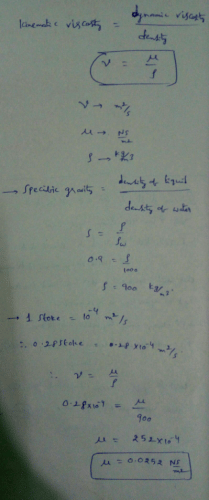 kinematic viscosity = dynamic viscosity / density
ν = μ / ρ
ν → m²/s
μ → NS/m²
ρ → kg/m3
→ Specific gravity = density of liquid / density of water
S = ρ / ρw
0.9 = ρ / 1000
ρ = 900 kg/m³
→ 1 Stoke = 10⁻⁴ m²/s
∴ 0.28 Stoke = 0.28 × 10⁻⁴ m²/s
∴ ν = μ / ρ
0.28 × 10⁻⁴ = μ / 900
μ = 252 × 10⁻⁴
μ = 0.0252 NS/m²